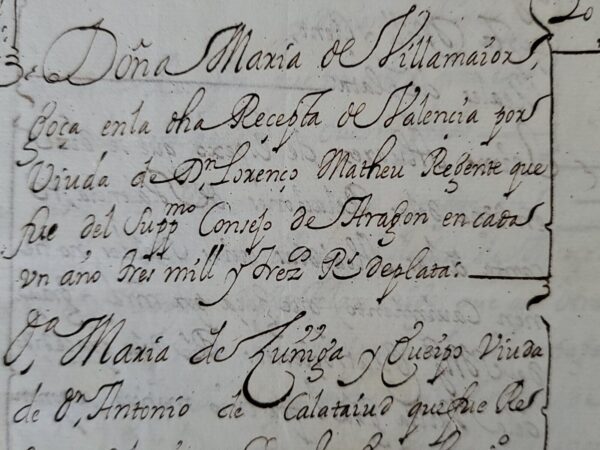 Doña Maria de Villamaior,
goça en la dha Recepta de Valencia por
Viuda de Dn. Lorenço Matheu Regente que
fue del Suppmo Consejo de Aragon en cada
vn año tres mill y trezos Rs de plata
Da Maria de Zuñiga y Cueipo Viuda
de Dn. Antonio de Calataiud que fue Re